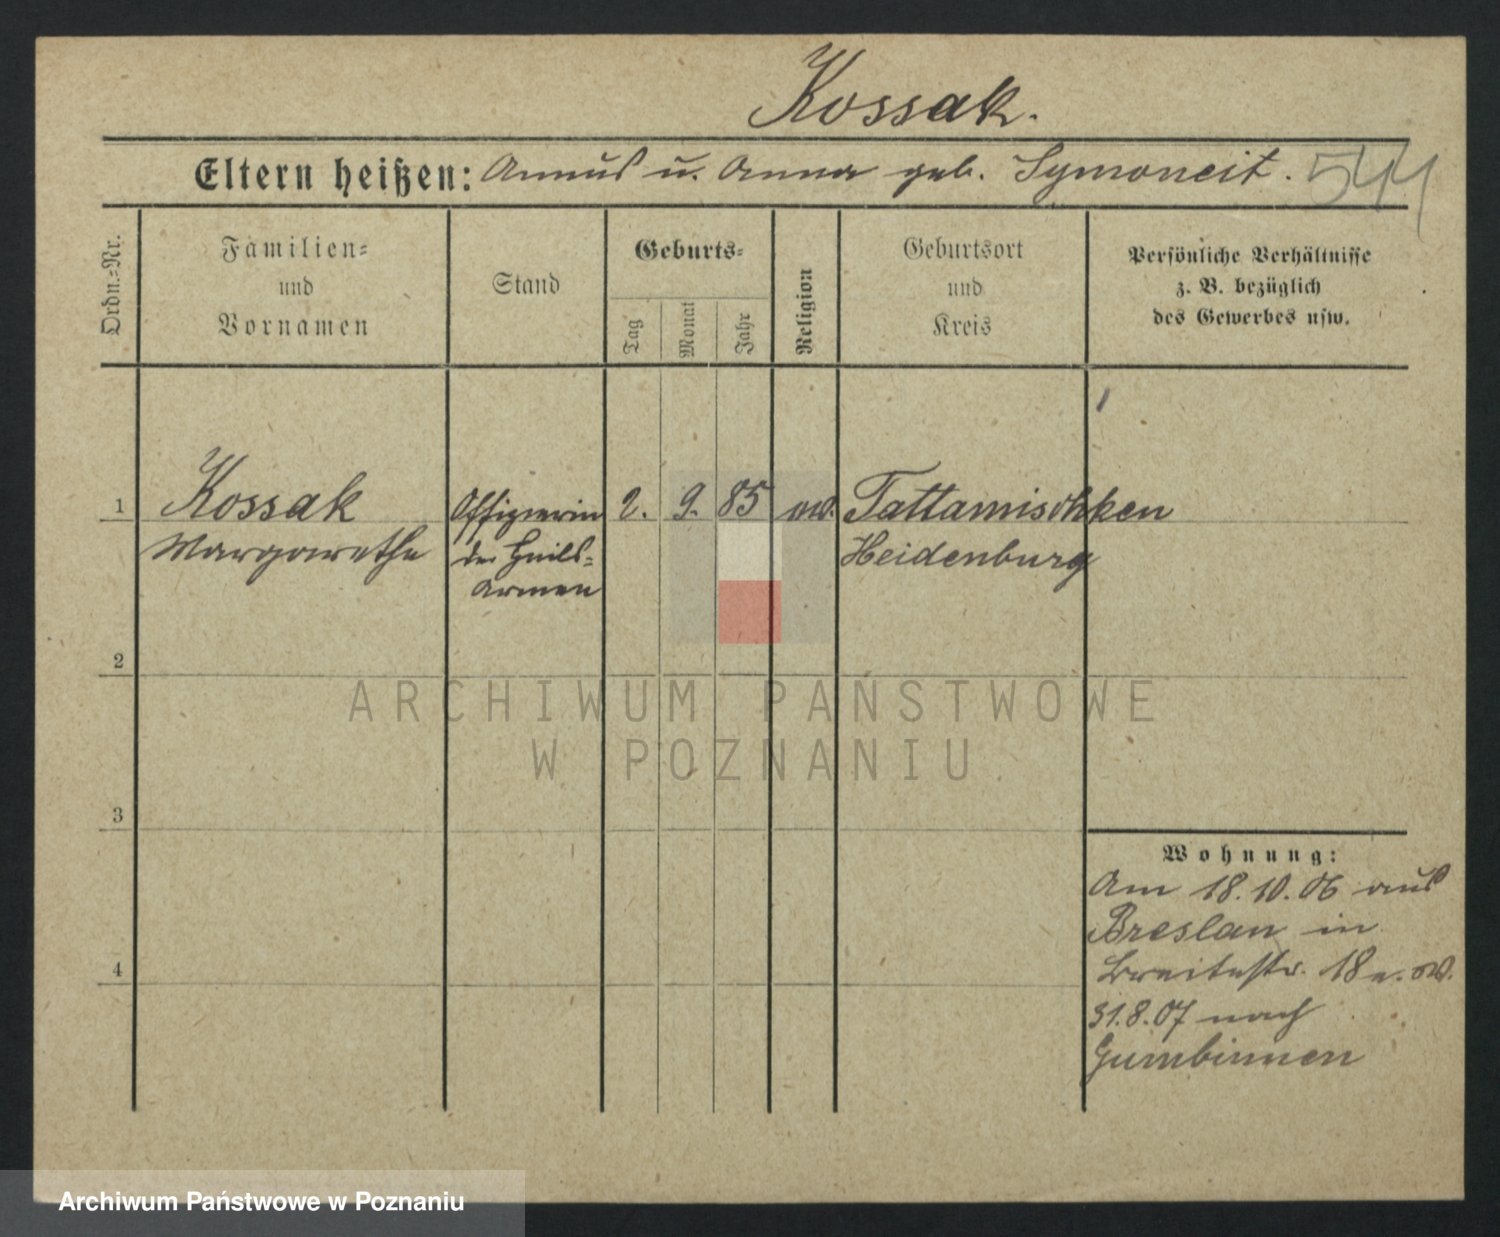 Kossak.
Eltern heißen: Annus u. Anna geb. Symoneit. 544
Ordn.=Nr.
Familien=
und
Vornamen
Stand
Geburts=
Tag
Monat
Jahr
Religion
Geburtsort
und
Kreis
Persönliche Verhältnisse
z. B. bezüglich
des Gewerbes usw.
1 Kossak Offizierin 2. 9. 85 ev. Tattamischken
Margarethe der Heils= Heidenburg
Armee
2
3
4
Wohnung:
Am 18.10.06 aus
Breslau in
Breitestr. 18
31.8.07 nach
Gumbinnen
ARCHIWUM PAŃSTWOWE
W POZNANIU
Archiwum Państwowe w Poznaniu